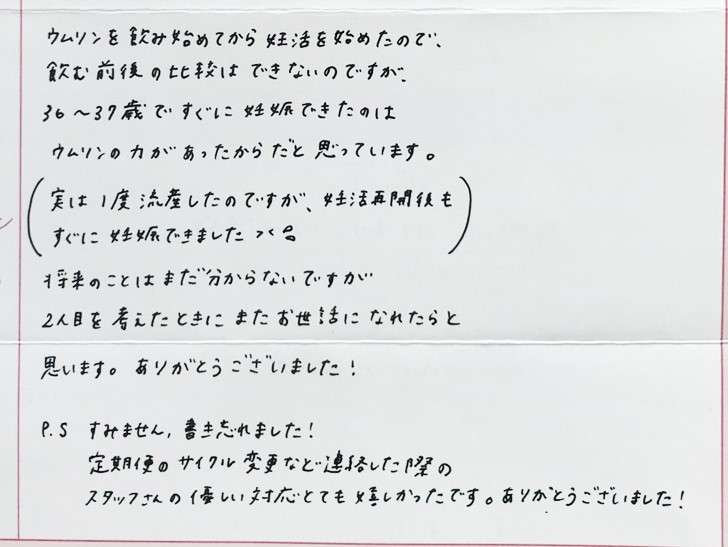 ウムリンを飲み始めてから妊活を始めたので、
飲む前後の比較はできないのですが、
36〜37歳ですぐに妊娠できたのは
ウムリンの力があったからだと思っています。
(実は1度流産したのですが、妊活再開後も
すぐに妊娠できました)
将来のことはまだ分からないですが
2人目を考えたときにまたお世話になれたらと
思います。ありがとうございました!
P.S すみません、書き忘れました!
定期便のサイクル変更など連絡した際の
スタッフさんの優しい対応とても嬉しかったです。ありがとうございました!